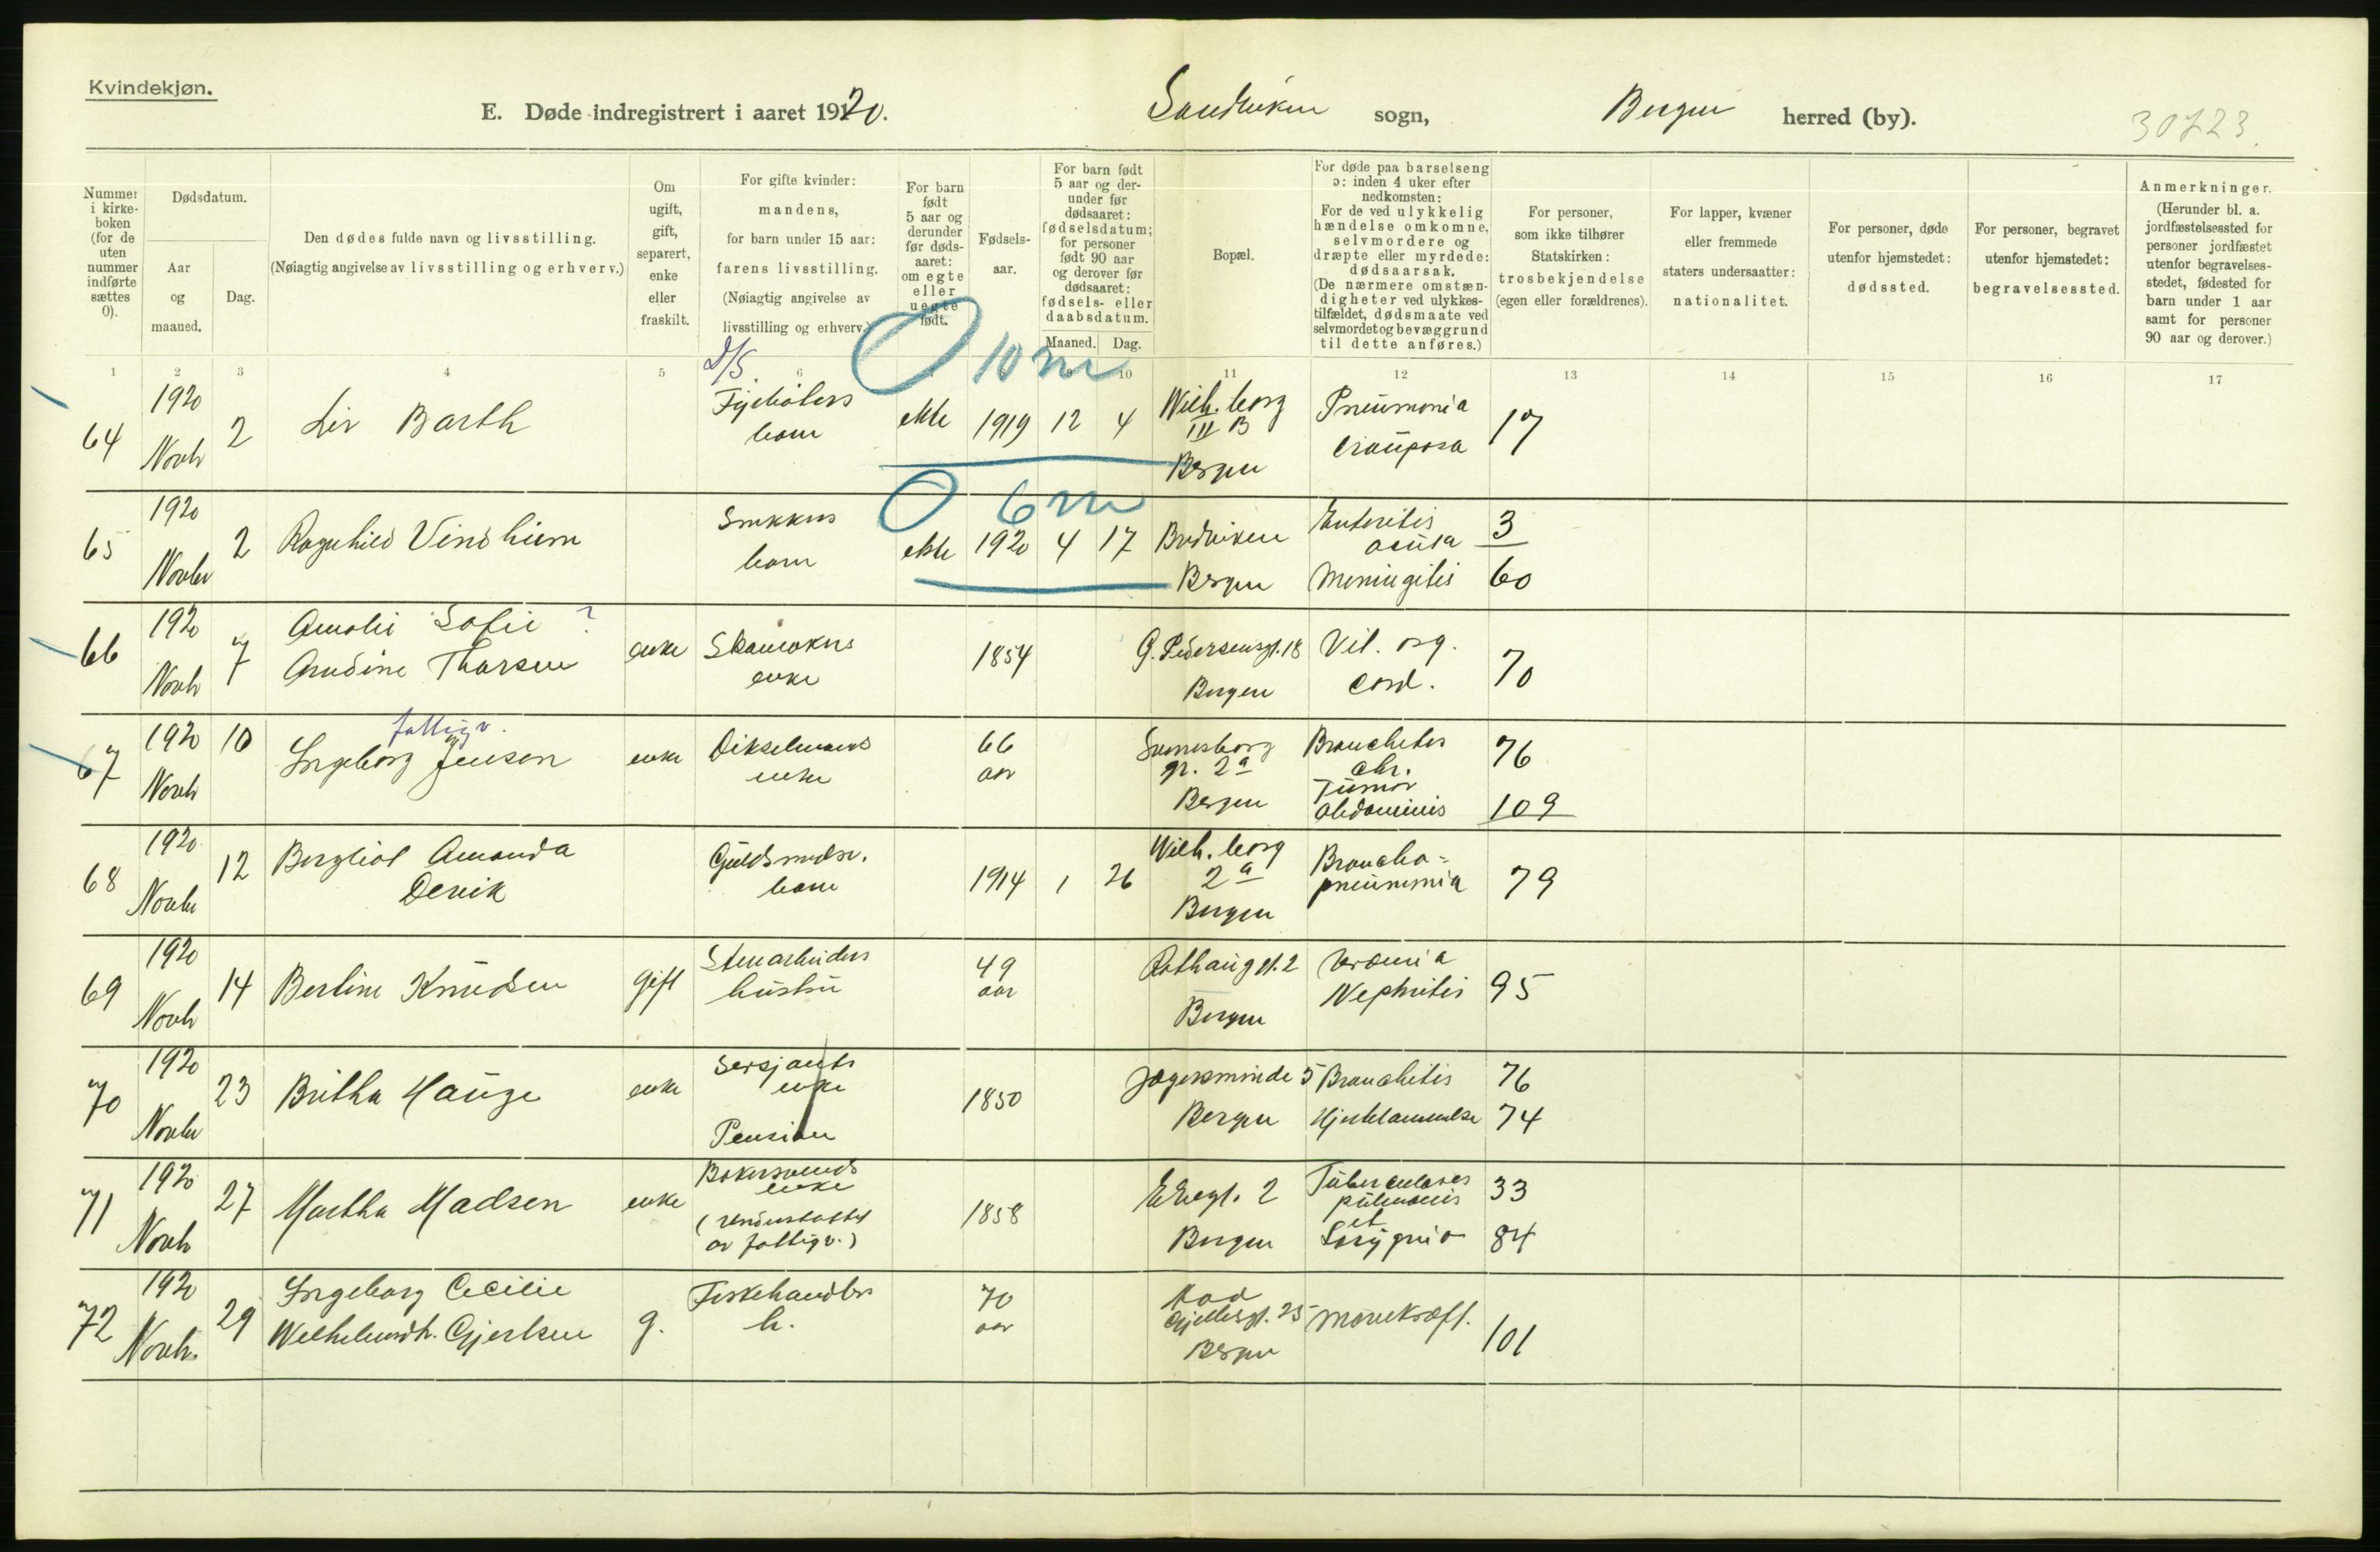 Kvindekjøn.
E. Døde indregistrert i aaret 1920.
Sandviken sogn,
Bergen herred (by).
30723.
Nummer i kirke-boken (for de uten nummer indførte sættes 0).
Dødsdatum.
Aar og maaned.
Dag.
Den dødes fulde navn og livsstilling.
(Nøiagtig angivelse av livsstilling og erhverv.)
Om ugift, gift, separert, enke eller fraskilt.
For gifte kvinder: mandens, for barn under 15 aar: farens livsstilling. (Nøiagtig angivelse av livsstilling og erhverv.)
For barn født 5 aar og derunder før døds-aaret: om egte eller uegte født.
Fødsels-aar.
For barn født 5 aar og der-under før dødsaaret: fødselsdatum; for personer født 90 aar og derover før dødsaaret: fødsels- eller daabsdatum.
Maaned. Dag.
Bopæl.
For døde paa barselseng ɔ: inden 4 uker efter nedkomsten: For de ved ulykkelig hændelse omkomne, selvmordere og dræpte eller myrdede: dødsaarsak. (De nærmere omstæn-digheter ved ulykkes-tilfældet, dødsmaate ved selvmordet og bevæggrund til dette anføres.)
For personer, som ikke tilhører Statskirken: trosbekjendelse (egen eller forældrenes).
For lapper, kvæner eller fremmede staters undersaatter: nationalitet.
For personer, døde utenfor hjemstedet: dødssted.
For personer, begravet utenfor hjemstedet: begravelsessted.
Anmerkninger. (Herunder bl. a. jordfæstelsessted for personer jordfæstet utenfor begravelses-stedet, fødested for barn under 1 aar samt for personer 90 aar og derover.)
1 2 3 4 5 6 7 8 9 10 11 12 13 14 15 16 17
D/S.
0 10 m
64 1920 Novb 2 Liv Barth Fyrbøters barn ekte 1919 12 4 Wilh. borg III B Bergen Pneumonia crouposa 17
0 6 m
65 1920 Novbr 2 Ragnhild Vindheim Snekkers barn ekte 1920 4 17 Bradviken Bergen Enteritis acuta 3 Meningitis 60
66 1920 Novb 7 Amalie Sofie ? Andine Thorsen enke Skomakers enke 1854 G. Pedersensgt. 18 Bergen Vit. org. cord. 70
67 1920 Novb 10 fattigv. Ingeborg Jensen enke enke 66 aar gr. 2a Bergen Bronchitis chr. 76 Tumor abdominis 109
68 1920 Novbr 12 Bergliot Amanda Devik Guldsmeds. barn 1914 1 26 Wilh. borg 2a Bergen Broncho-pneumonia 79
69 1920 Novb 14 Bertine Knudsen gift Stenarbeiders hustru 49 aar Rothaugt. 2 Bergen Uræmia Nephritis 95
70 1920 Novbr 23 Britha Hauge enke Sersjants enke Pension 1850 Jægersminde 5 Bergen Bronchitis 76 Hjertelammelse 74
71 1920 Novb 27 Martha Madsen enke Bakersvends enke (understøttet av fattigv.) 1858 Ekregt. 2 Bergen Tuberculoses pulmonis et 33 84
72 1920 Novb. 29 Ingeborg Cecilie Gjertsen g. Fiskehandlers h. 70 aar gt. 25 Bergen Mavekræft. 101